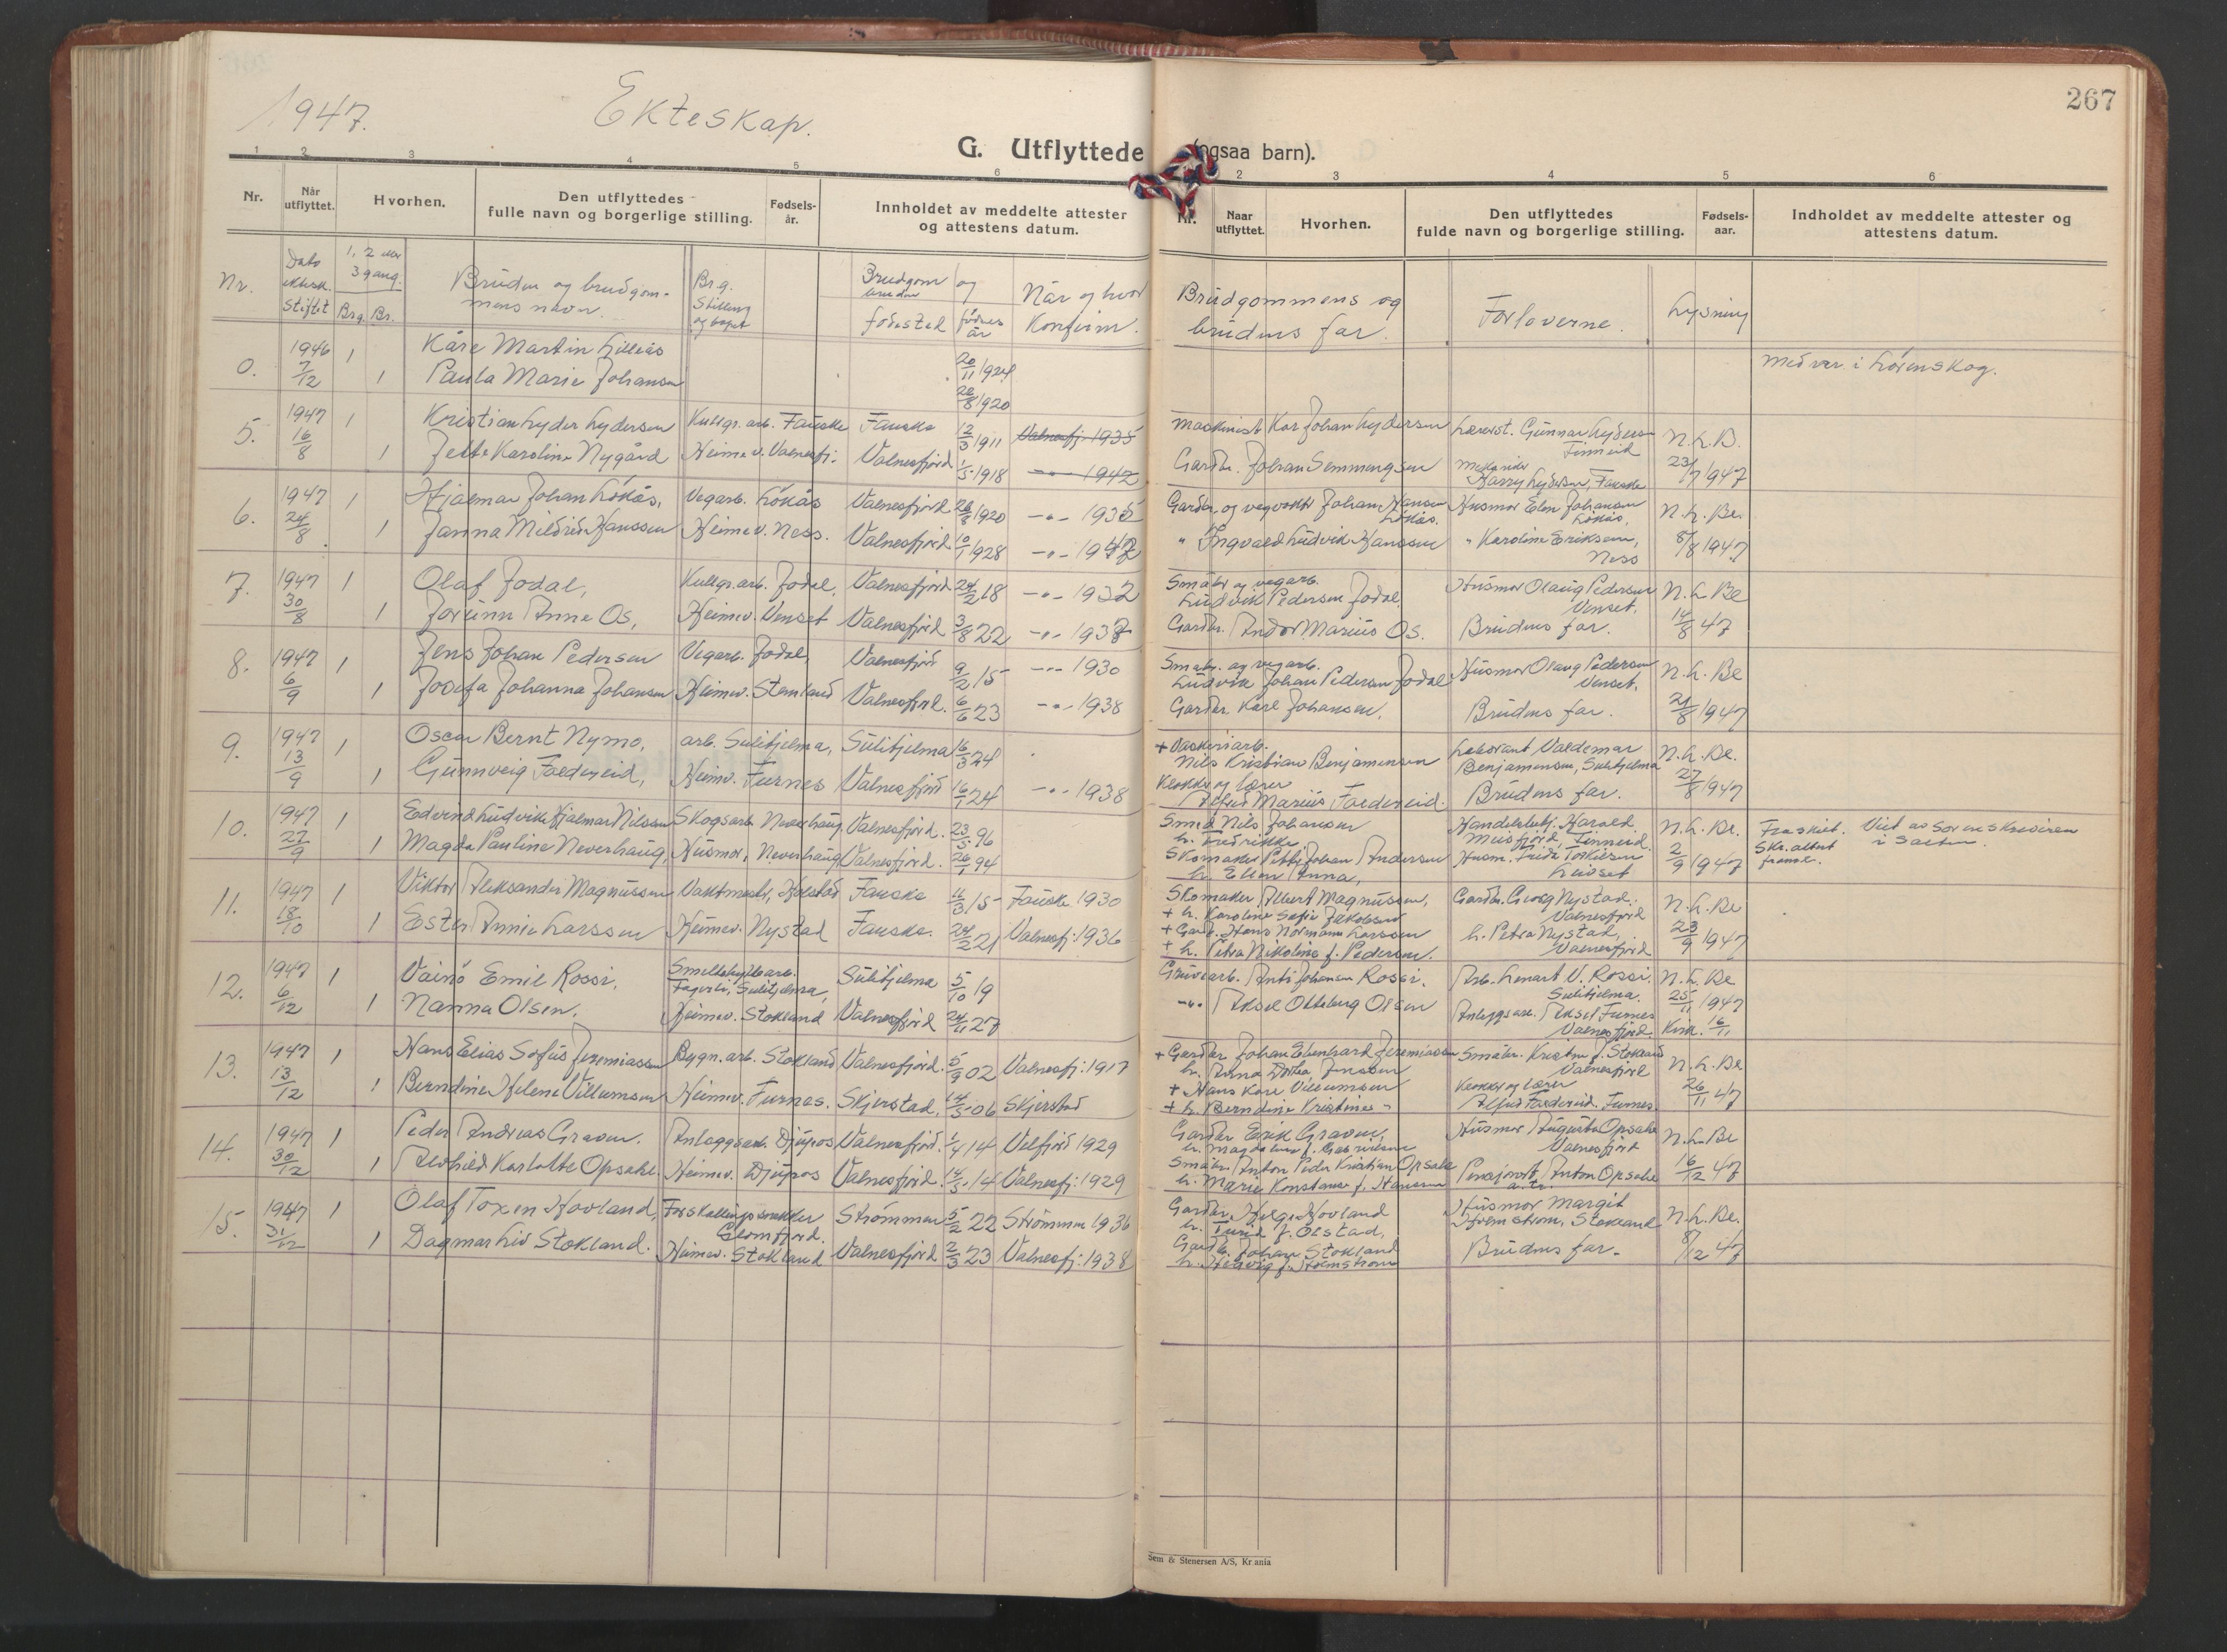 267
1947.
Ekteskap.
G. Utflyttede (ogsaa barn).
1 2 3 4 5 6
2 3 4 5 6
Nr.
Når utflyttet.
Hvorhen.
Den utflyttedes fulle navn og borgerlige stilling.
Fødsels-år.
Innholdet av meddelte attester og attestens datum.
Nr.
Naar utflyttet.
Hvorhen.
Den utflyttedes fulde navn og borgerlige stilling.
Fødsels-aar.
Indholdet av meddelte attester og attestens datum.
Nr.
Dato stiftet
1, 2 eller 3 gang.
Brg. Br.
Bruden og brudgom-
mens navn.
Brg. Stilling og bopel
Brudgom og bruden
fødested fødsels år
Når og hvor
Konfirm.
Brudgommens og
brudens far.
Forloverne.
Lysning
0. 1946 7/12 1 Kåre Martin Lilleås 20/11 1924 Medver. i Lørenskog.
1 Paula Marie Johansen 26/8 1920
5. 1947 16/8 1 Kristian Lyder Lydersen Kullgr. arb. Fauske Fauske 12/3 1911 Valnesfj. 1935 Maskinist Kar Johan Lydersen Lærerst. Gunnar Lydersen Finneid N.L.B.
1 Jette Karoline Nygård Heimev. Valnesfj. Valnesfjord 1/5 1918 -"- 1942 Gardbr. Johan Semmingsen Harry Lydersen, Fauske 23/7 1947
6. 1947 24/8 1 Hjalmar Johan Løkås, Vegarb. Løkås Valnesfjord 26/8 1920 -"- 1935 Gardbr. og vegvokter Johan Hansen Løkås. Husmor Elen Johansen Løkås, N.L. Be.
1 Janna Mildrid Hanssen Heimev. Ness. Valnesfjord 10/1 1928 -"- 1942 " Ingvald Ludvik Hanssen " Karoline Eriksen, Ness 8/8 1947
7. 1947 30/8 1 Olaf Jodal, Kullgr. arb. Jodal, Valnesfjord 24/2 18 -"- 1932 Småbr. og vegarb. Ludvik Pedersen Jodal. Husmor Olaug Pedersen Venset. N.L. Be
1 Jorunn Anne Os, Heimev. Venset Valnesfjord 3/8 22 -"- 1937 Gardbr. Andor Marius Os. Brudens far. 14/8 47
8. 1947 6/9 1 Jens Johan Pedersen Vegarb. Jodal, Valnesfjord 9/2 15 -"- 1930 Småbr. og vegarb. Ludvik Johan Pedersen Jodal Husmor Olaug Pedersen Venset. N.L. Be
1 Josefa Johanna Johansen Heimev. Stemland Valnesfjord. 6/6 23 -"- 1938 Gardbr. Karl Johansen. Brudens far. 21/8 1947
9. 1947 13/9 1 Oscar Bernt Nymo, arb. Sulitjelma, Sulitjelma 16/3 24 + Vaskeriarb. Nils Kristian Benjaminsen Laborant Valdemar Benjaminsen, Sulitjelma N.L. Be.
1 Gunnveig Foldereid, Heimv. Furnes Valnesfjord 16/1 24 -"- 1938 Klokker og lærer Alfred Marius Foldereid. Brudens far. 27/8 1947
10. 1947 27/9 1 Edvind Ludvik Hjalmar Nilssen Skogsarb. Neverhaug, Valnesfjord. 23/5 96 Smed Nils Johansen h. Fredrikke Handelsbetj. Harald Misfjord, Finneid. N.L. Be. Fraskilt. Skr. attest framl. Viet av Sorenskriveren i Salten.
1 Magda Pauline Neverhaug, Husmor, Neverhaug Valnesfjord. 26/1 94 Skomaker Petter Johan Andersen h. Ellen Anna, Husm. Frida Torkilsen Leivset 2/9 1947
11. 1947 18/10 1 Viktor Aleksander Magnussen Vaktmester, Holstad Fauske 11/3 15 Fauske 1930 Skomaker Albert Magnussen, + h. Karoline Sofie Jakobsen Gardbr. Georg Nystad. Valnesfjord N.L. Be
1 Ester Annie Larssen Heimev. Nystad Fauske. 24/2 21 Valnesfj: 1936 + Gardb. Hans Normann Larssen + h. Petra Nikoline f. Pedersen. h. Petra Nystad, Valnesfjord 23/9 1947
12. 1947 6/12 1 Väinö Emil Rossi, Smeltehyttearb. Fagerli, Sulitjelma, Sulitjelma 5/10 19 Gruvearb. Anti Johansen Rossi. Arb. Lenart V. Rossi. Sulitjelma. N.L. Be
1 Nanna Olsen. Heimev. Stokland Valnesfjord 24/11 27 -"- Aksel Olteberg Olsen Anleggsarb. Aksel Furnes Valnesfjord. 25/11 1947 Kirk. 16/11
13. 1947 13/12 1 Hans Elias Sofus Jeremiassen Bygn. arb. Stokland Valnesfjord. 5/9 02 Valnesfj: 1917 + Gardbr. Johan Ebenhard Jeremiassen h. Anna Dortea Jenssen Småbr. Kristen J. Stokland Valnesfjord N.L. Be
1 Berndine Helene Villumsen Heimev. Furnes. Skjerstad, 14/5 06 Skjerstad + Hans Kare Villumsen + h. Berndine Kristine - Klokker og lærer Alfred Foldereid. Furnes. 26/11 47
14. 1947 30/12 1 Peder Andreas Graven. Anleggsarb. Djupos Valnesfjord. 1/4 14 Velfjord 1929 Gardbr. Erik Graven, h. Magdalena f. Gabrielsen Husmor Augusta Opsahl Valnesfjord N.L. Be
1 Alvhild Karlotte Opsahl Heimev. Djupos Valnesfjord. 14/5 14 Valnesfj: 1929 Småbr. Anton Peder Kristian Opsahl h. Marie Konstanse f. Hansen Pensjonist Anton Opsahl 16/12 47
15. 1947 31/12 1 Olaf Toxen Hovland, Forskallingssnekker Glomfjord. Strømmen 5/2 22 Strømmen 1936 Gardbr. Helge Hovland h. Turid f. Olstad, Husmor Margit Holmstrøm, Stokland N.L. Be.
1 Dagmar Liv Stokland. Heimev. Stokland Valnesfjord 2/3 23 Valnesfj: 1938 Gardb. Johan Stokland h. Hedvig f. Holmstrøm Brudens far. 8/12 47
Sem & Stenersen A/S, Kr.ania